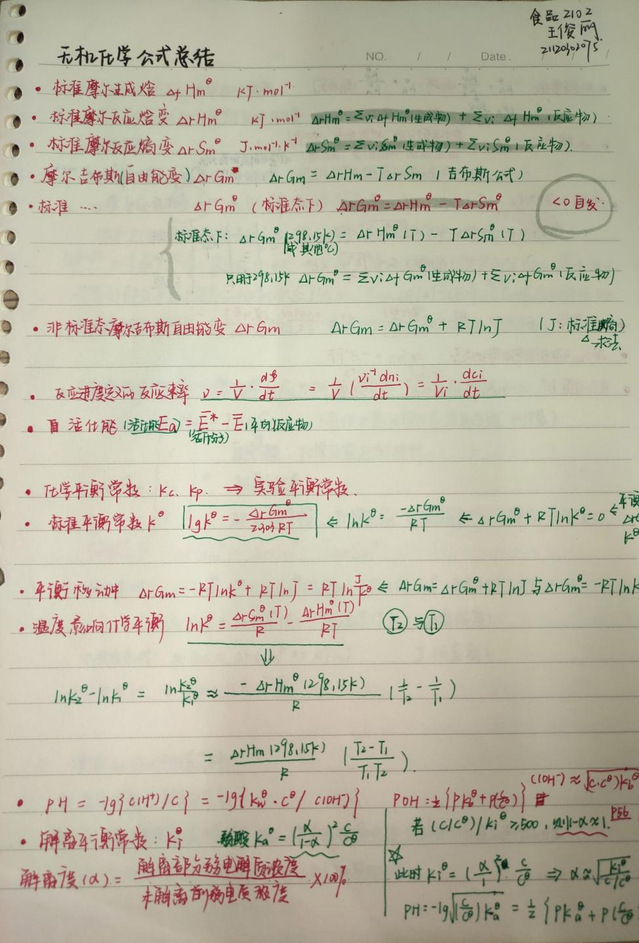 食品2102
无机化学公式总结
NO.
Date.
• 标准摩尔生成焓 ΔfHm^θ kJ·mol⁻¹
• 标准摩尔反应焓变 ΔrHm^θ kJ·mol⁻¹ ΔrHm^θ=Σνi ΔfHm^θ(生成物) + Σνi ΔfHm^θ(反应物)
• 标准摩尔反应熵变 ΔrSm^θ J·mol⁻¹·K⁻¹ ΔrSm^θ=Σνi Sm^θ(生成物) + Σνi Sm^θ(反应物)
• 摩尔吉布斯(自由能变) ΔrGm ΔrGm = ΔrHm - TΔrSm (吉布斯公式)
• 标准 ···· ΔrGm^θ (标准态下) ΔrGm^θ=ΔrHm^θ - TΔrSm^θ <0自发
标准态下: ΔrGm^θ(298.15K) = ΔrHm^θ(T) - TΔrSm^θ(T)
只用于298.15K ΔrGm^θ = Σνi ΔfGm^θ(生成物) + Σνi ΔfGm^θ(反应物)
• 非标准态摩尔吉布斯自由能变 ΔrGm ΔrGm = ΔrGm^θ + RTlnJ
• 反应进度定义的反应速率 υ = 1/V · dξ/dt = 1/V (νi⁻¹dni/dt) = 1/νi · dci/dt
• 活化能(活化能Ea) = E* - E(平均)(反应物)
• 化学平衡常数: Kc, Kp. ⇒ 实验平衡常数.
• 标准平衡常数K^θ lgK^θ = -ΔrGm^θ/2.303RT ⇐ lnK^θ = -ΔrGm^θ/RT ⇐ ΔrGm^θ + RTlnK^θ=0
• 平衡移动 ΔrGm = -RTlnK^θ + RTlnJ = RTln J/K^θ ⇐ ΔrGm=ΔrGm^θ+RTlnJ与ΔrGm^θ=-RTlnK
• 温度影响化学平衡 lnK^θ = ΔrSm^θ(T)/R - ΔrHm^θ(T)/RT T₂与T₁
⇓
lnK₂^θ - lnK₁^θ = lnK₂^θ/K₁^θ ≈ -ΔrHm^θ(298.15K)/R (1/T₂ - 1/T₁)
= ΔrHm(298.15K)/R (T₂-T₁/T₁T₂).
• PH = -lg{c(H⁺)/C} = -lg{Kw^θ·c^θ/c(OH⁻)}
POH = ½{PKb^θ + P(c/c^θ)}
(OH⁻) ≈ √(c·c^θ)Kb^θ
若(c/c^θ)/Ki^θ≥500, 则1-α≈1. P56
• 解离平衡常数: Ki^θ 弱酸Ka^θ = (α/1-α)² c/c^θ
☆ 此时Ki^θ = (α/1)² · c/c^θ ⇒ α ≈ √(Ki^θ/c/c^θ)
解离度(α) = 解离部分弱电解质浓度/未解离前弱电质浓度 ×100%
PH = -lg√(c/c^θ)Ka^θ = ½{PKa^θ + P(c/c^θ